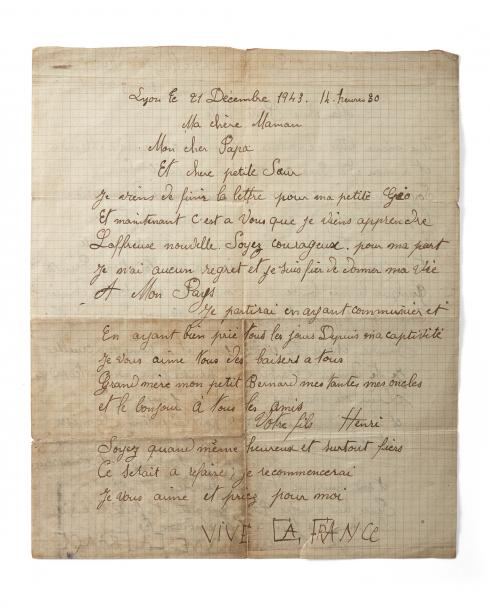 Lyon le 21 Décembre 1943. 14. heures 30
Ma chère Maman
Mon cher Papa
Et chere petite Sœur
Je viens de finir la lettre pour ma petite Géo
Et maintenant c'est a Vous que je viens apprendre
L'affreuse nouvelle. Soyez courageux. pour ma part
Je n'ai aucun regret et je suis fier de donner ma vie
A Mon Pays
Je partirai en ayant communier et
En ayant bien prié tous les jours Depuis ma captivité
Je vous aime tous des baisers a tous
Grand mère mon petit Bernard mes tantes mes oncles
et le bonjour à tous les amis
Votre fils Henri
Soyez quand même heureux et surtout fiers
Ce serait a refaire je recommencerai
Je vous aime et priez pour moi
VIVE LA FRANCE